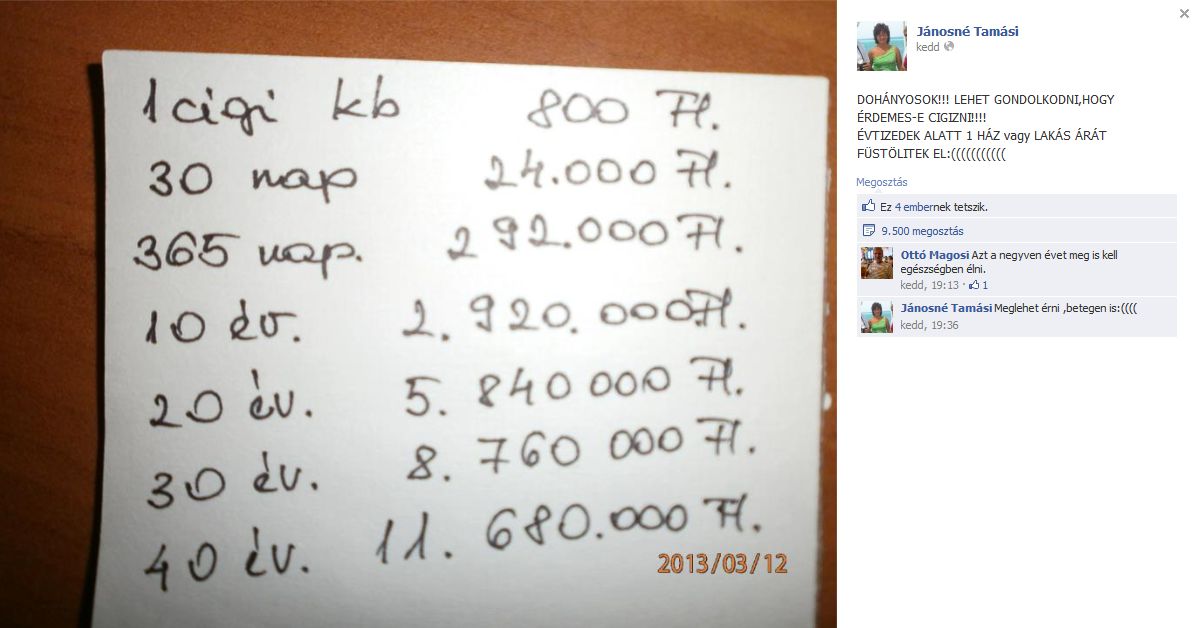 1 cigi kb 800 Ft.
30 nap 24.000 Ft.
365 nap. 292.000 Ft.
10 év. 2.920.000 Ft.
20 év. 5.840 000 Ft.
30 év. 8.760 000 Ft.
40 év. 11.680.000 Ft.
2013/03/12
Jánosné Tamási
kedd
DOHÁNYOSOK!!! LEHET GONDOLKODNI,HOGY
ÉRDEMES-E CIGIZNI!!!!
ÉVTIZEDEK ALATT 1 HÁZ vagy LAKÁS ÁRÁT
FÜSTÖLITEK EL:(((((((((((
Megosztás
Ez 4 embernek tetszik.
9.500 megosztás
Ottó Magosi Azt a negyven évet meg is kell
egészségben élni.
kedd, 19:13 · 1
Jánosné Tamási Meglehet érni ,betegen is:((((
kedd, 19:36